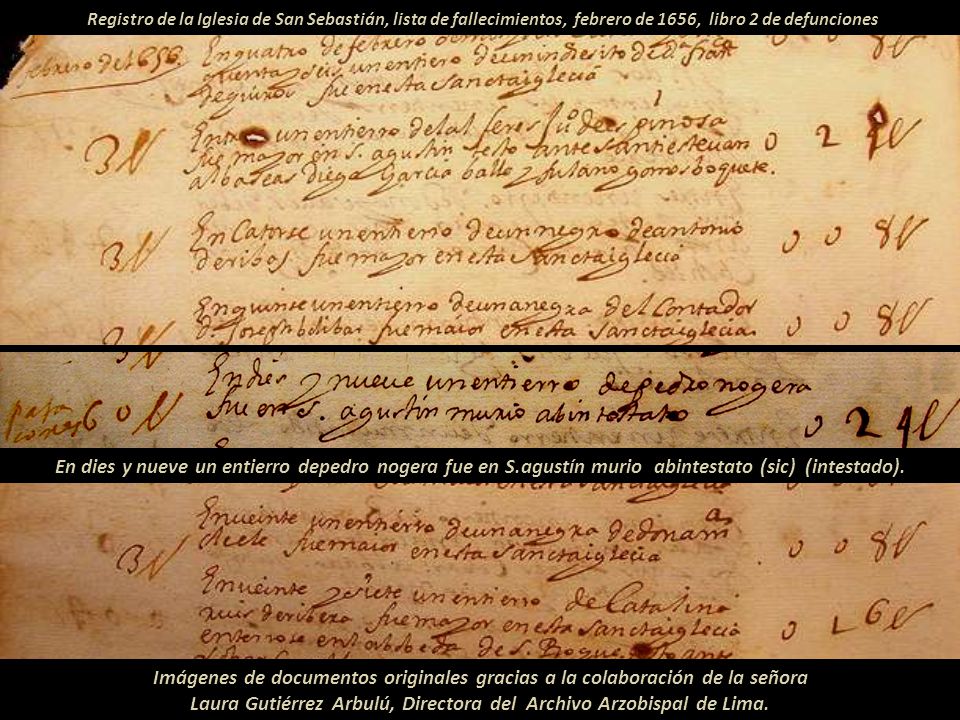 Registro de la Iglesia de San Sebastián, lista de fallecimientos, febrero de 1656, libro 2 de defunciones
febrero del 656. En quatro de febrero
un entierro de un indiesito de
fue en esta sancta iglecia
un entierro del alferes de espinosa 0 2 4
fue mayor en S. agustin testo ante santiestevan
albaseas Diego Garcia ballo y fulano gomos boquete.
3 En Catorse un entierro de un negro de antonio 0 0 8
de ribas fue mayor en esta sancta iglecia
En quinse un entierro de una negra del Contador 0 0 8
3 D. Joseph bolibar fue maior en esta sancta iglecia.
En dies y nueve un entierro de pedro nogera
pata cones 60 fue en S. agustin murio abintestato 0 24
En dies y nueve un entierro depedro nogera fue en S.agustín murio abintestato (sic) (intestado).
en esta sancta iglecia
3 En veinte un entierro de una negra de dona 0 0 8
fue maior en esta sancta iglecia
En veinte y siete un entierro de Catalina
ruis de ribera fue mayor en esta sancta iglecia 0 1 6
enterrose en la de S. Roque testo ante
Imágenes de documentos originales gracias a la colaboración de la señora
Laura Gutiérrez Arbulú, Directora del Archivo Arzobispal de Lima.